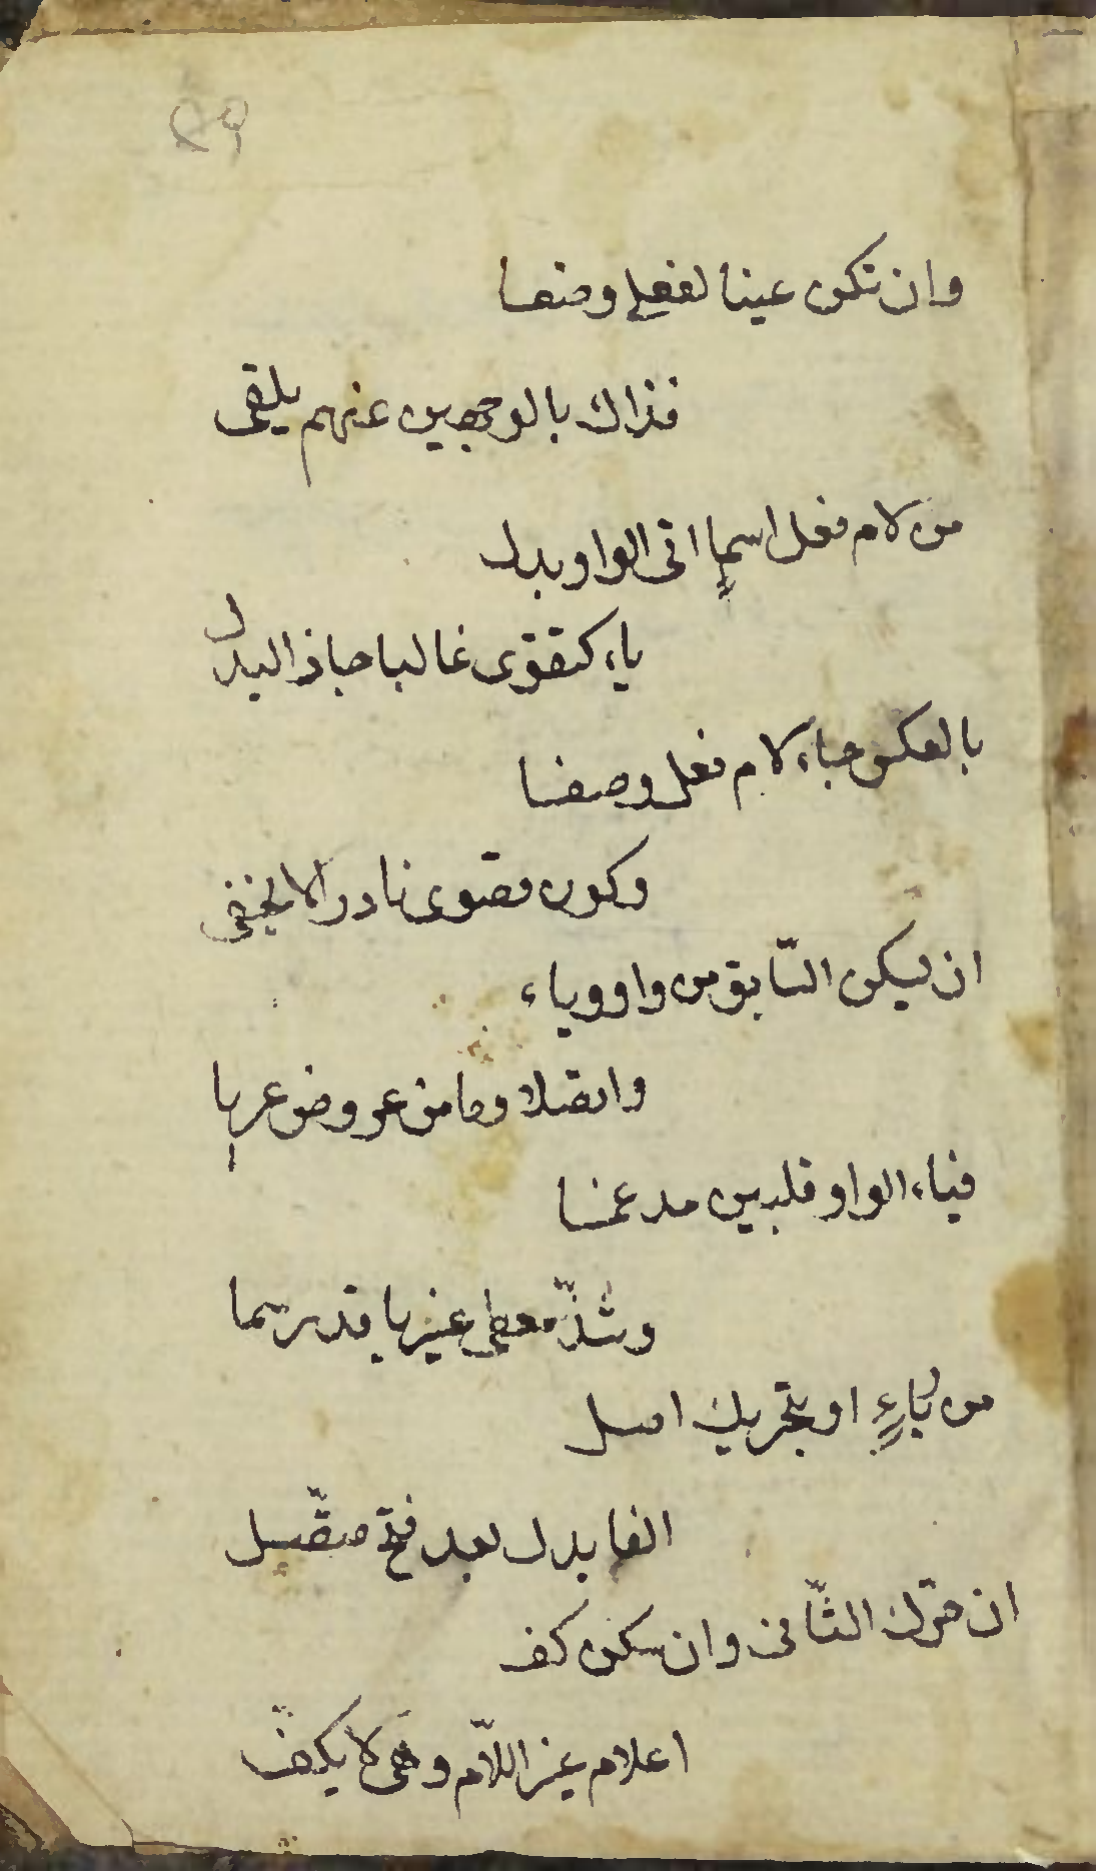 ٤٩
وان تكن عينا لفعلى وصفا
فذاك بالوجهين عنهم يلقى
من لام فعلى اسماٍ اتى الواو بدل
ياء كتقوى غالبا جا ذا البدل
بالعكس جاء لام فعلى وصفا
وكون قصوى نادرا لا يخفى
ان يسكن السّابق من واو وياء
واتصلا ومن عروض عريا
فياء الواو اقلبن مدغما
وشذّ معطى غير ما قد رسما
من ياءٍ او بتحريك اصل
الفا بدل بعد فتح متّصل
ان حرّك الثّانى وان سكن كف
اعلال غير اللّام وهى لا يكفّ